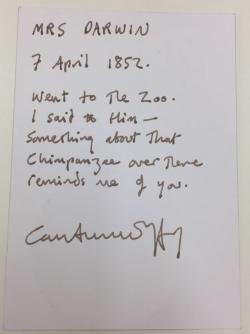 MRS DARWIN
7 April 1852.
Went to The Zoo.
I said to Him —
Something about That
Chimpanzee over There
reminds me of you.
Carol Ann Duffy